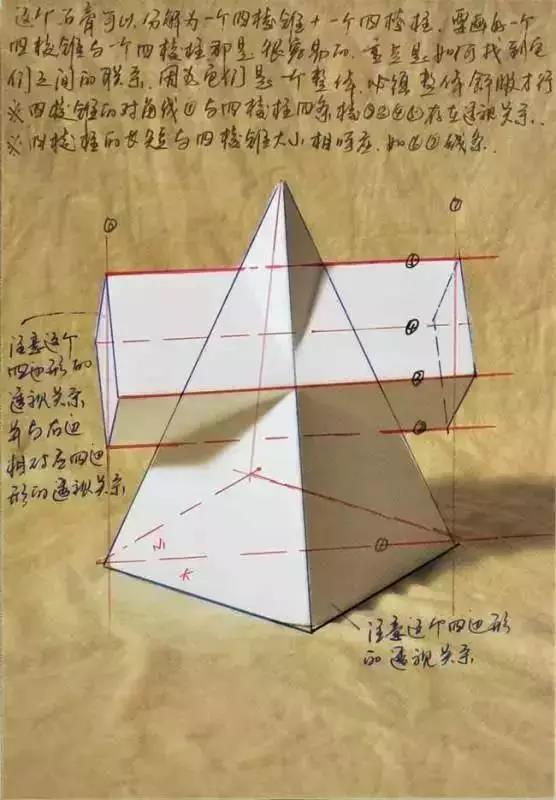 这个石膏可以分解为一个四棱锥+一个四棱柱.要画好一个
四棱锥与一个四棱柱那是很容易的.重点是如何找到它
们之间的联系.因为它们是一个整体.必须整体斜服才行
※四棱锥的对角线①与四棱柱四条棱②③④⑤存在透视关系.
※四棱柱的长短与四棱锥大小相呼应.如⑥⑦线条.
⑥
⑦
⑤
④
②
③
①
注意这个
四边形的
透视关系
并与右边
相对应四边
形的透视关系
小
大
注意这个四边形
的透视关系